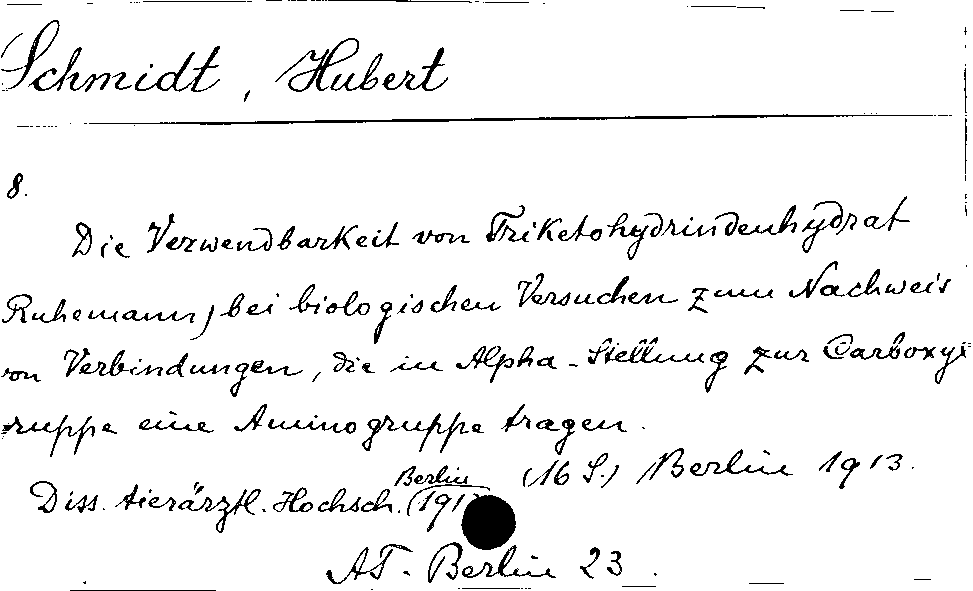 Schmidt, Hubert
8.
Die Verwendbarkeit von Triketohydrindenhydrat
Ruhemann) bei biologischen Versuchen zum Nachweis
von Verbindungen, die in Alpha-Stellung zur Carboxyl
ruppe eine Aminogruppe tragen.
(16 S.) Berlin 1913.
Berlin
Diss. tierärztl. Hochsch. (191
AT. Berlin 23.